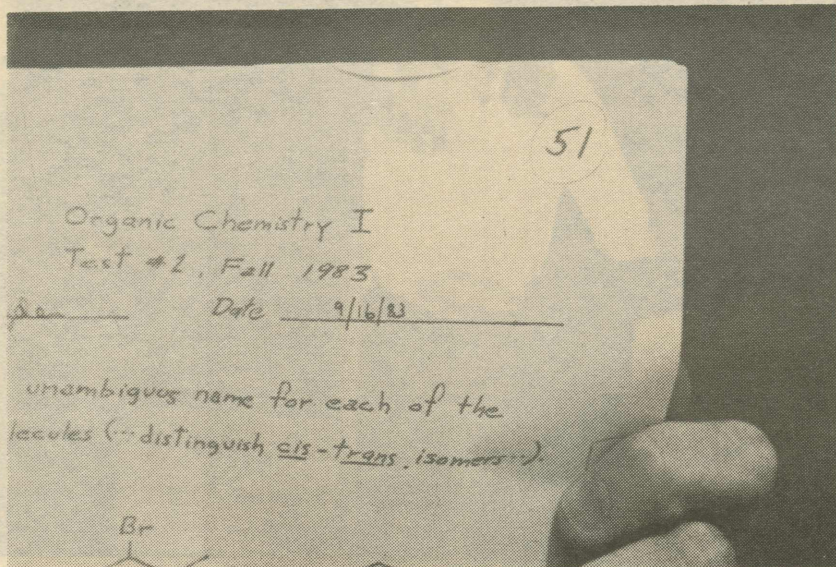 51
Organic Chemistry I
Test #1, Fall 1983
Date 9/16/83
unambiguos name for each of the
lecules (...distinguish cis-trans isomers...).
Br